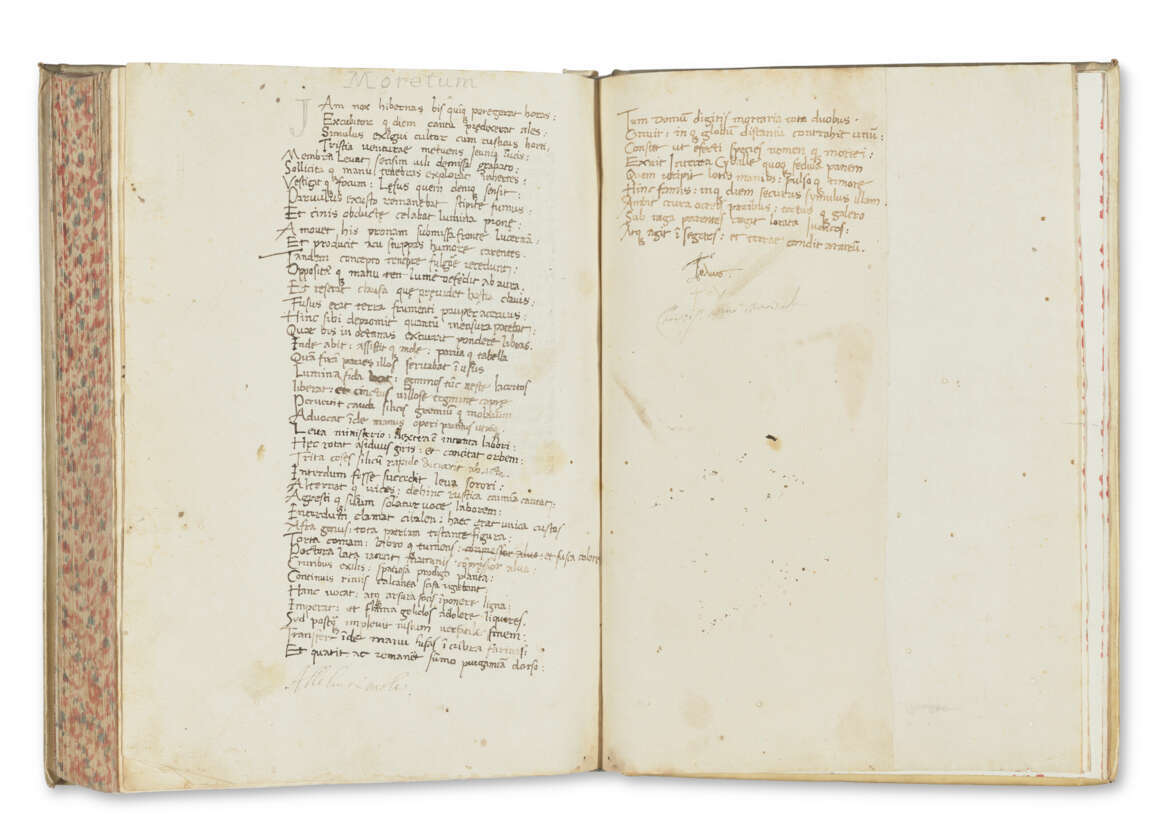 Moretum
J Am nox hibernas bis quīq peregerat horas:
Excubitor q diem cantu predixerat ales:
Simulus exigui cultor cum rusticus horti,
Tristia venturae metuens ieunia lucis:
Membra levat sensim vili demissa grabato:
Sollicita q manu tenebras explorat inhertes:
Vestigat q focum: Lesus quem deniq sensit:
Parvulus exusto remanebat stipite fumus:
Et cinis obducte celabat lumina prone:
Amovet his pronam submissa fronte lucernā:
Et producit acu stuppas humore carentes:
Tandem concepto tenebre fulgore recedunt:
Opposita q manu lumē defēdit ab aura.
Et reserat clausa que pervidet hostia clavis:
Fusus erat terra frumenti pauper acervus:
Hinc sibi depromit quantū mensura patebat:
Quae bis in octonas excurit pondere libras.
Inde abit: assistit q mole: parva q tabella
Quā fixā paries illos servabat ī usus
Lumina fida: geminos tūc veste lacertos
liberat: et cinctus villose tegmine capre
Perverrit cauda silices gremium q molarum
Advocat īde manus operi
Leva ministerio: dextra ē intenta labori:
Hec rotat asiduus giris: et concitat orbem:
Trita silicū rapido
Interdum fesse succedit leva sorori:
Alternat q vices: dehinc rustica carmina cantat:
Agresti q suum solatur voce laborem:
Interdum clamat cibalen: haec erat unica custos
Afra genus: tota patriam testante figura:
Torta comam: labro q tumens: et fusca colore
Pectora lata iacens mammis cōpresior alvo:
Cruribus exilis: spatiosa prodiga planta:
Continuis rimis calcanea scisa rigebant:
Hanc vocat: atq arsura focis īponere ligna:
Imperat: et flāma gelidos adolere liquores.
Sed postq implevit iustum versatile finem:
Transfert īde manu fusas ī cribra farinas:
Et quatit ac remanēt sūmo purgamīa dorso:
Tum demū digitis mortaria tota duobus.
Circuit: inq globū distantia contrahit unū:
Constet ut efecti species nomen q moreti:
Eruit Interea Cyballe quoq sedula panem
Quem recipit lotis manibus: pulso q timore
Hinc famis: inq diem securus symulus illam
Ambit crura ocreis paribus: tectus q galero
Sub iuga parentes cogit lorata iuvencos:
Atq agit ī segetes: et terrae condit aratrū.